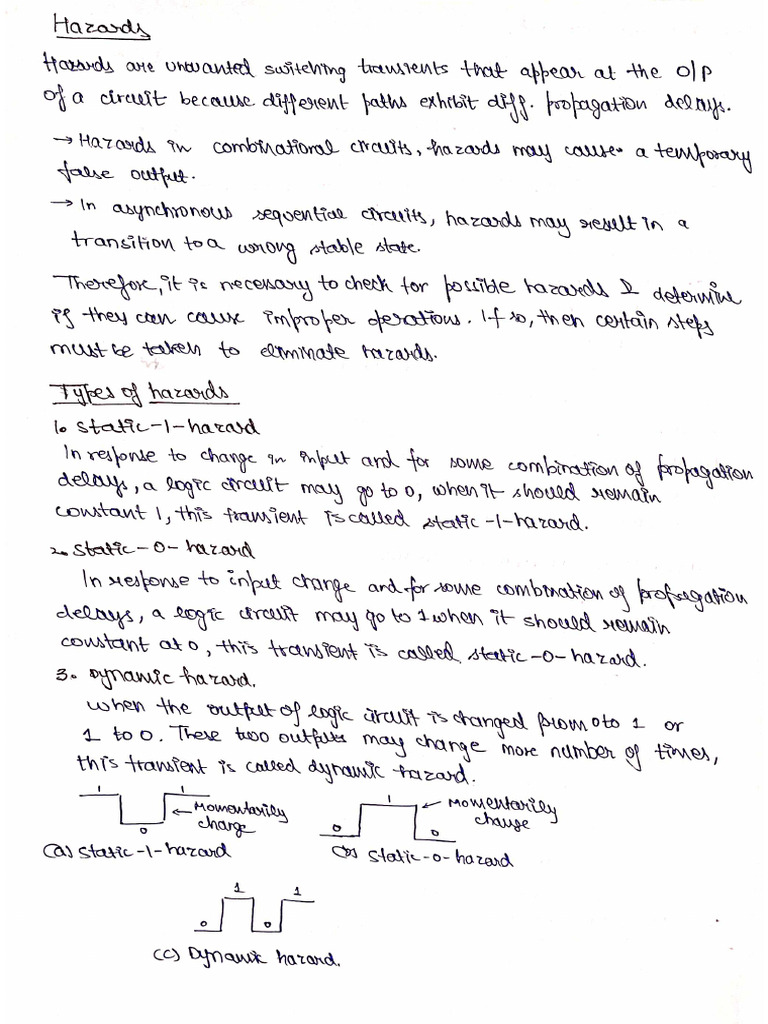 Hazards
Hazards are unwanted switching transients that appear at the O/P
of a circuit because different paths exhibit diff. propagation delays.
→ Hazards in combinational circuits, hazards may cause a temporary
false output.
→ In asynchronous sequential circuits, hazards may result in a
transition to a wrong stable state.
Therefore, it is necessary to check for possible hazards & determine
if they can cause improper operations. If so, then certain steps
must be taken to eliminate hazards.
Types of hazards
1. static-1-hazard
In response to change in input and for some combination of propagation
delays, a logic circuit may go to 0, when it should remain
constant 1, this transient is called static-1-hazard.
2. static-0-hazard
In response to input change and for some combination of propagation
delays, a logic circuit may go to 1 when it should remain
constant at 0, this transient is called static-0-hazard.
3. Dynamic hazard.
when the output of logic circuit is changed from 0 to 1 or
1 to 0. These two outputs may change more number of times,
this transient is called dynamic hazard.
1 0 1 ← Momentarily change
0 1 0 ← Momentarily change
(a) static-1-hazard (b) static-0-hazard
0 1 0 1
(c) Dynamic hazard.